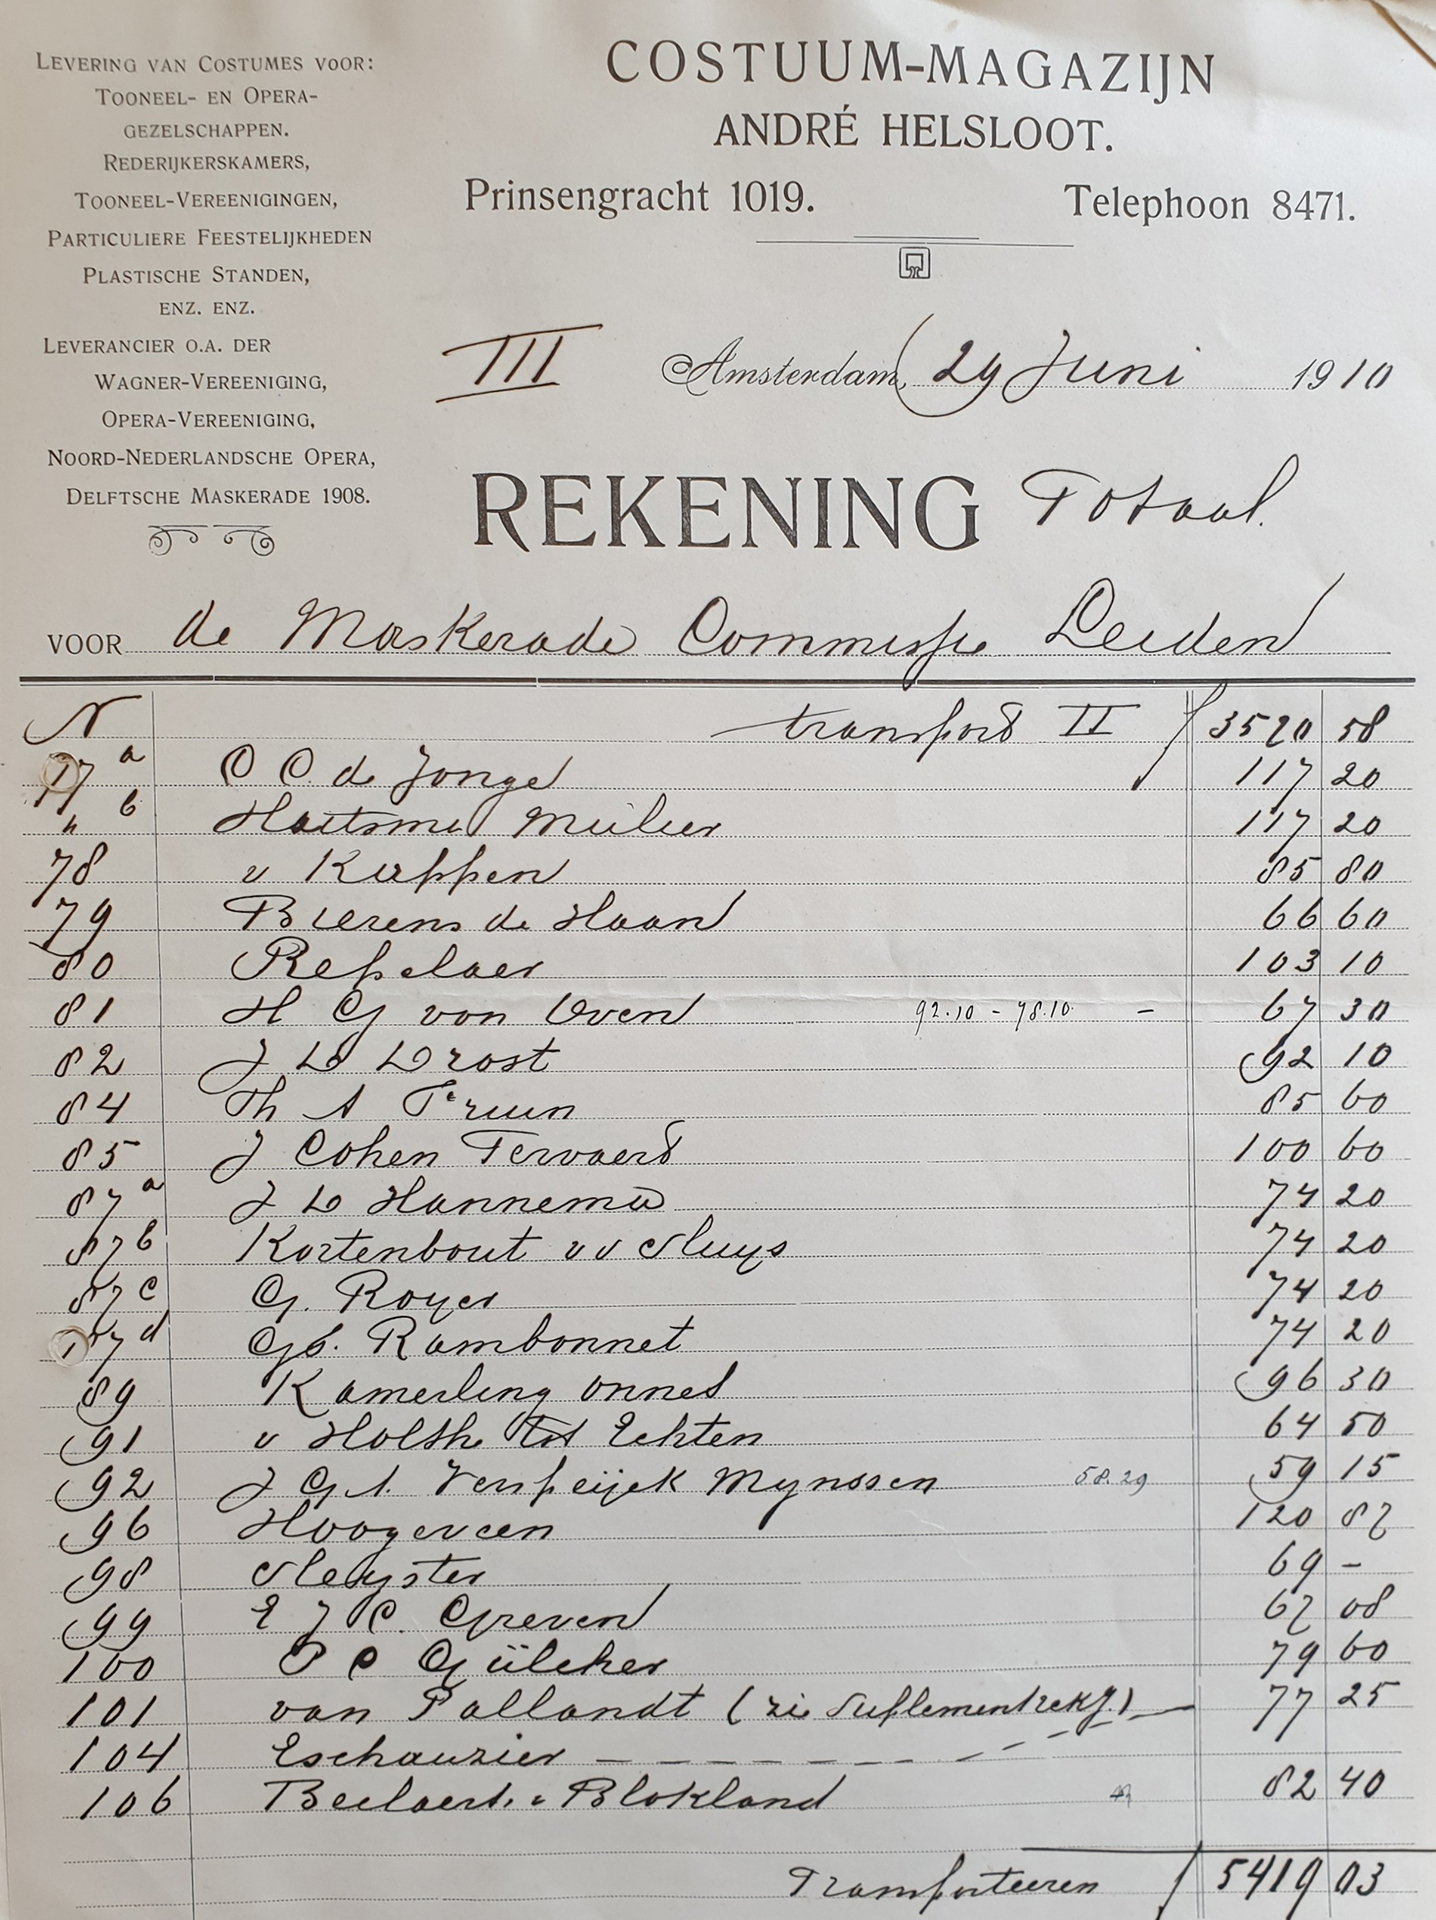 LEVERING VAN COSTUMES VOOR:
TOONEEL- EN OPERA-
GEZELSCHAPPEN.
REDERIJKERSKAMERS,
TOONEEL-VEREENIGINGEN,
PARTICULIERE FEESTELIJKHEDEN
PLASTISCHE STANDEN,
ENZ. ENZ.
LEVERANCIER O.A. DER
WAGNER-VEREENIGING,
OPERA-VEREENIGING,
NOORD-NEDERLANDSCHE OPERA,
DELFTSCHE MASKERADE 1908.
COSTUUM-MAGAZIJN
ANDRÉ HELSLOOT.
Prinsengracht 1019. Telephoon 8471.
III Amsterdam, 29 Juni 1910
REKENING Totaal.
VOOR de Maskerade Commissie Leiden
N transport II f 3520 58
77 a C C de Jonge 117 20
" b Haitsma Mulier 117 20
78 v Kappen 85 80
79 Bierens de Haan 66 60
80 Repelaer 103 10
81 H G von Oven 92.10 - 78.10 - 67 30
82 J L Drost 92 10
84 Th A Fruin 85 60
85 J Cohen Tervaert 100 60
87 a J L Hannema 74 20
87 b Kortenbout v v Sluys 74 20
87 c G. Royer 74 20
87 d Gs. Rambonnet 74 20
89 Kamerling onnes 96 30
91 v Holthe tot Echten 64 50
92 J G A. Verspeijck Mynssen 58.29 59 15
96 Hoogeveen 120 82
98 Sleyster 69 -
99 E J C. Greven 62 08
100 P C Gülcher 79 60
101 van Pallandt (zie Suplementrekg.) 77 25
104 Eschauzier
106 Beelaert. v Blokland 82 40
Transporteeren f 5419 03